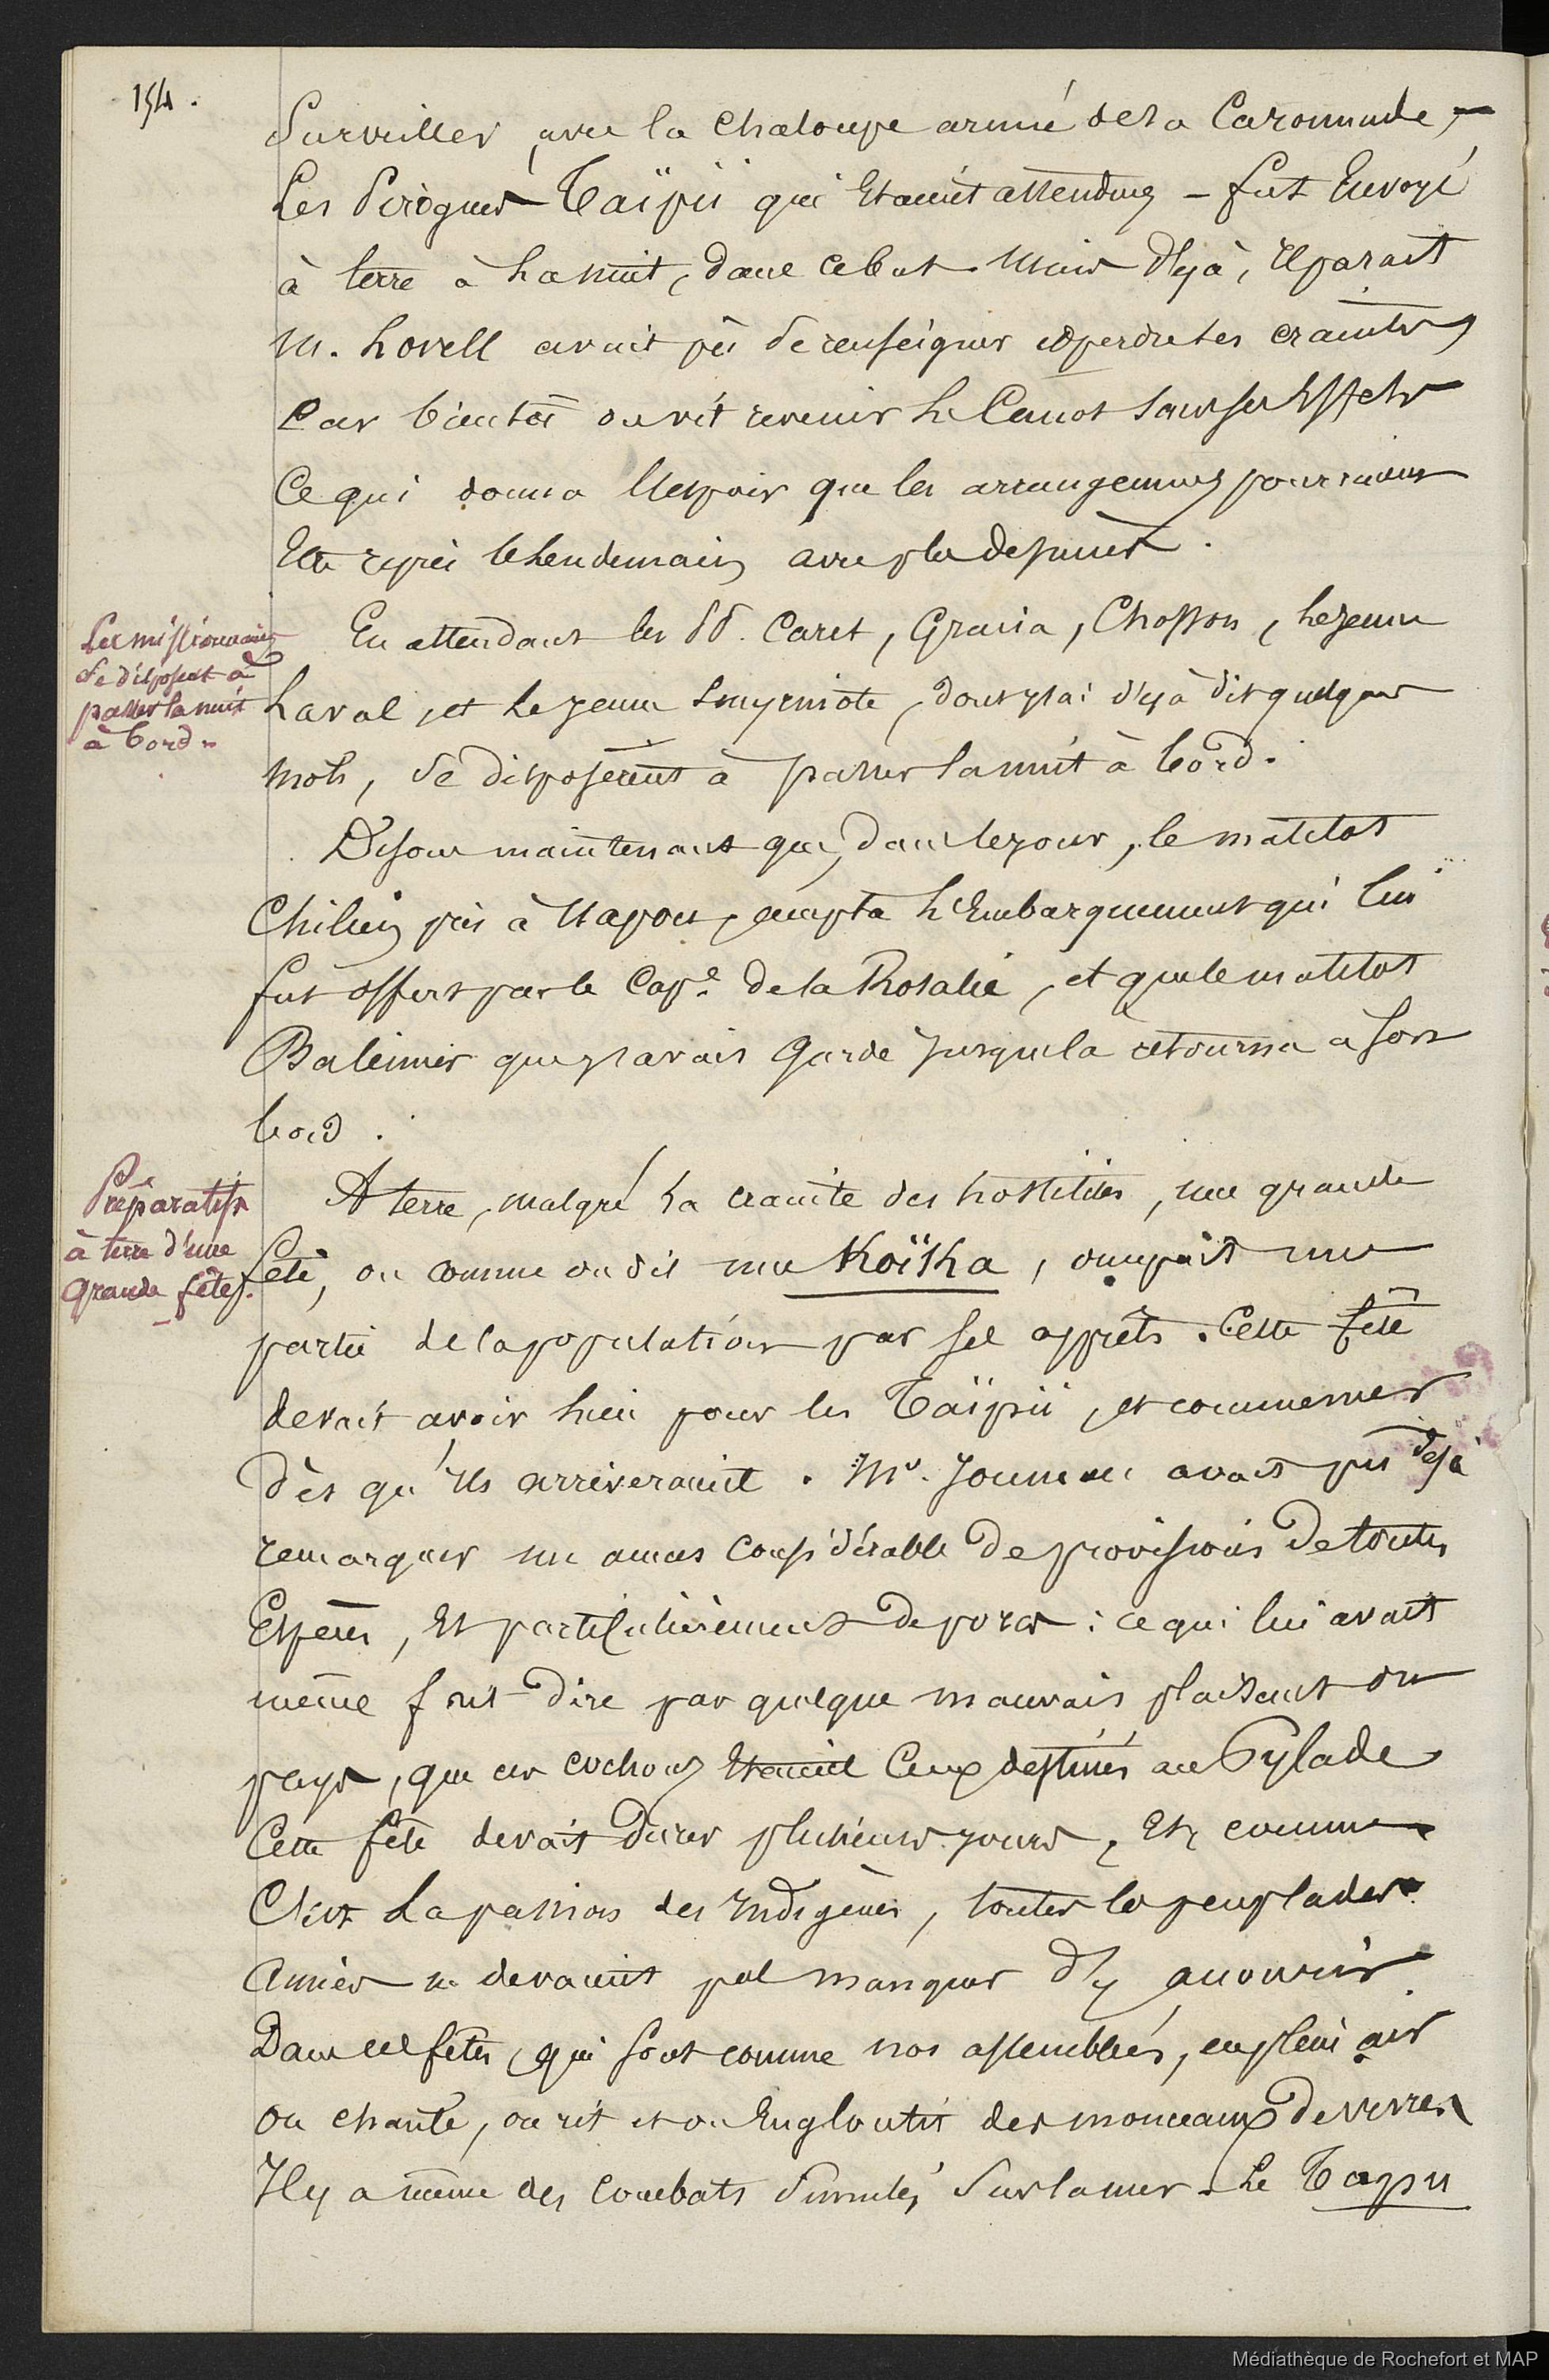 154.
Surveiller, avec la Chaloupe armée de sa Caronnade,
Les Pirogues Taïpii qui Etaient attendues – fut Envoyé
à terre à la nuit, dans ce but. Mais déjà, Il parait
M. Lovell avait pû se renseigner et perdre ses craintes,
Car bientôt on vit revenir le Canot sans ses Effets
Ce qui donna l'espoir que les arrangements pourraient
Etre repris le lendemain avec plus de succès.
Les missionnaires
se disposent à
passer la nuit
à bord.
En attendant les PP. Caret, Gracia, Chosson, le jeune
Laval, et le jeune Smyrniote, dont j'ai déjà dit quelques
mots, se disposèrent à passer la nuit à bord.
Disons maintenant que, dans le jour, le matelot
Chilien pris à Uapou, accepta l'Embarquement qui lui
fut offert par le Cape. de la Rosalie, et que le matelot
Baleinier que j'avais gardé jusque là retourna à son
bord.
Préparatifs
à terre d'une
grande fête.
A terre, malgré la crainte des hostilités, une grande
fête, ou comme on dit une Koïka, occupait une
partie de la population par ses apprêts. Cette fête
devait avoir lieu pour les Taïpii, et commencer
dès qu'Ils arriveraient. Mr. Jouneau avait pu déjà
remarquer un amas considérable de provisions de toutes
Espèces, Et particulièrement de porcs : ce qui lui avait
même fait dire par quelque mauvais plaisant du
pays, que ces cochons Etaient Ceux destinés au Pylade
Cette fête devait durer plusieurs jours, Et, comme
C'est La passion des Indigènes, toutes les peuplades
Amies ne devaient pas manquer d'y accourir
Dans ces fêtes, qui sont comme nos assemblées, en plein air
On chante, on rit et on Engloutit des monceaux de vivres
Il y a même des Combats simulés sur la mer. Le Tapu
Médiathèque de Rochefort et MAP